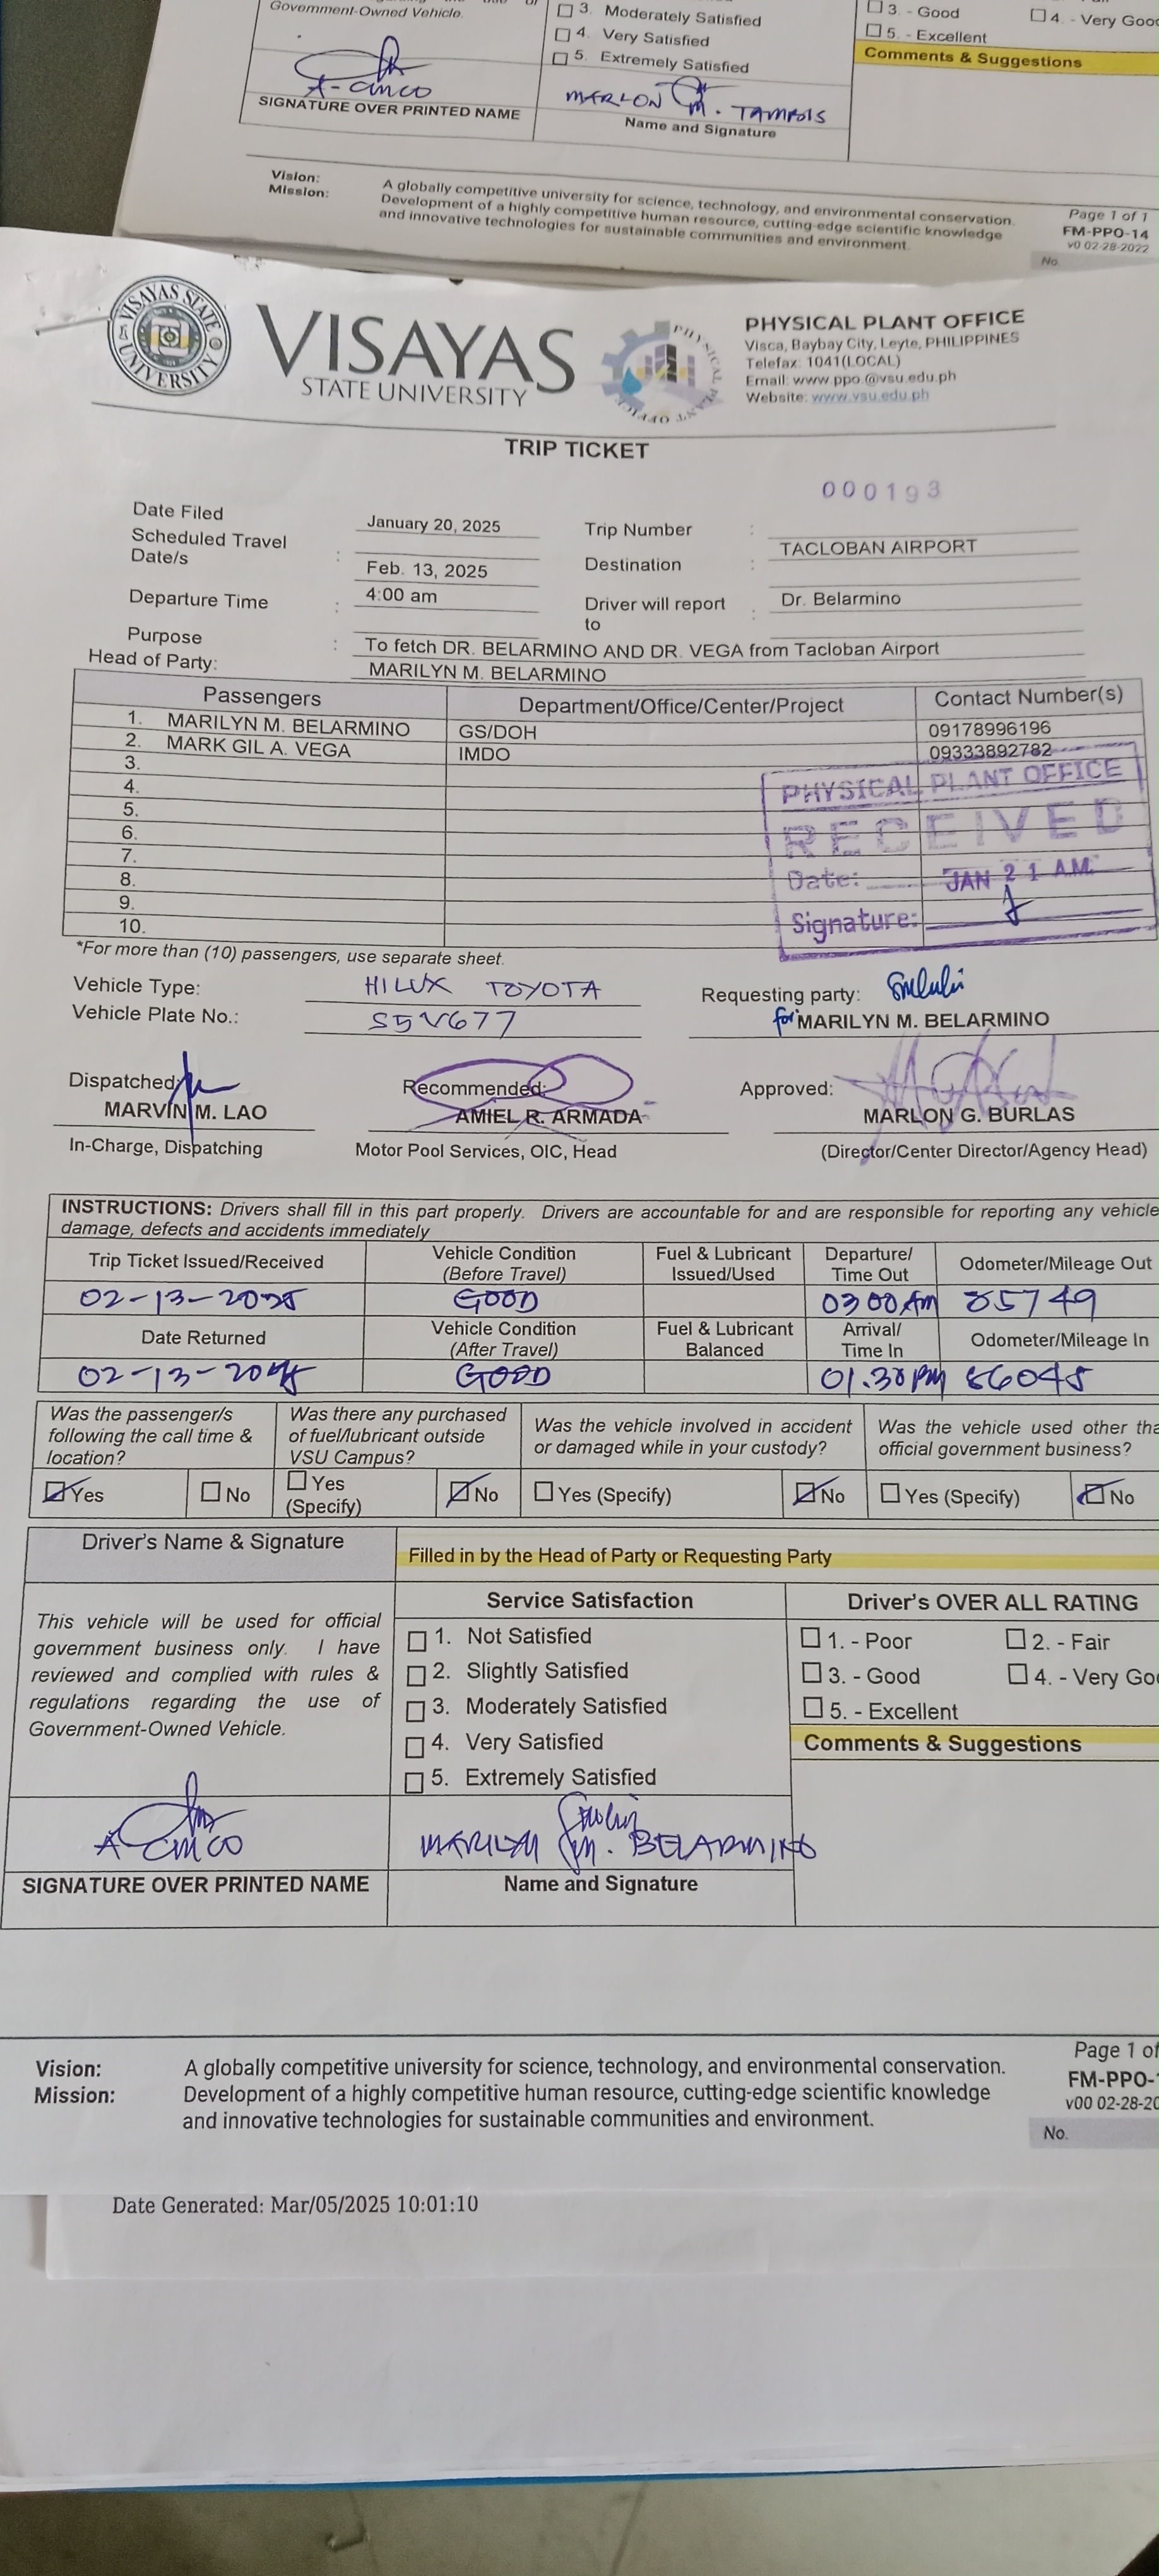 Government-Owned Vehicle.
3. Moderately Satisfied
4. Very Satisfied
5. Extremely Satisfied
3. - Good
4. - Very Goo
5. - Excellent
Comments & Suggestions
A-CINCO
SIGNATURE OVER PRINTED NAME
MARLON M. TAMBIS
Name and Signature
Vision: A globally competitive university for science, technology, and environmental conservation.
Mission: Development of a highly competitive human resource, cutting-edge scientific knowledge
and innovative technologies for sustainable communities and environment.
Page 1 of 1
FM-PPO-14
v0 02-28-2022
No.
VISAYAS STATE UNIVERSITY
VISAYAS
STATE UNIVERSITY
PHYSICAL PLANT OFFICE
PHYSICAL PLANT OFFICE
Visca, Baybay City, Leyte, PHILIPPINES
Telefax: 1041(LOCAL)
Email: www.ppo.@vsu.edu.ph
Website: www.vsu.edu.ph
TRIP TICKET
000193
Date Filed January 20, 2025 Trip Number :
Scheduled Travel Date/s : Feb. 13, 2025 Destination : TACLOBAN AIRPORT
Departure Time : 4:00 am Driver will report to : Dr. Belarmino
Purpose : To fetch DR. BELARMINO AND DR. VEGA from Tacloban Airport
Head of Party: MARILYN M. BELARMINO
Passengers Department/Office/Center/Project Contact Number(s)
1. MARILYN M. BELARMINO GS/DOH 09178996196
2. MARK GIL A. VEGA IMDO 09333892782
3.
4.
5.
6.
7.
8.
9.
10.
PHYSICAL PLANT OFFICE
RECEIVED
Date: JAN 21 A.M.
Signature:
*For more than (10) passengers, use separate sheet.
Vehicle Type: HILUX TOYOTA
Vehicle Plate No.: S5V677
Requesting party:
for MARILYN M. BELARMINO
Dispatched:
MARVIN M. LAO
In-Charge, Dispatching
Recommended:
AMIEL R. ARMADA
Motor Pool Services, OIC, Head
Approved:
MARLON G. BURLAS
(Director/Center Director/Agency Head)
INSTRUCTIONS: Drivers shall fill in this part properly. Drivers are accountable for and are responsible for reporting any vehicle
damage, defects and accidents immediately
Trip Ticket Issued/Received Vehicle Condition (Before Travel) Fuel & Lubricant Issued/Used Departure/ Time Out Odometer/Mileage Out
02-13-2025 GOOD 03 00 AM 85749
Date Returned Vehicle Condition (After Travel) Fuel & Lubricant Balanced Arrival/ Time In Odometer/Mileage In
02-13-2025 GOOD 01.30 PM 86045
Was the passenger/s following the call time & location?
Was there any purchased of fuel/lubricant outside VSU Campus?
Was the vehicle involved in accident or damaged while in your custody?
Was the vehicle used other tha official government business?
Yes No Yes (Specify) No Yes (Specify) No Yes (Specify) No
Driver's Name & Signature
Filled in by the Head of Party or Requesting Party
This vehicle will be used for official
government business only. I have
reviewed and complied with rules &
regulations regarding the use of
Government-Owned Vehicle.
Service Satisfaction
1. Not Satisfied
2. Slightly Satisfied
3. Moderately Satisfied
4. Very Satisfied
5. Extremely Satisfied
Driver's OVER ALL RATING
1. - Poor 2. - Fair
3. - Good 4. - Very Go
5. - Excellent
Comments & Suggestions
A CINCO
SIGNATURE OVER PRINTED NAME
MARILYN M. BELARMINO
Name and Signature
Vision: A globally competitive university for science, technology, and environmental conservation.
Mission: Development of a highly competitive human resource, cutting-edge scientific knowledge
and innovative technologies for sustainable communities and environment.
Page 1 of
FM-PPO-
v00 02-28-20
No.
Date Generated: Mar/05/2025 10:01:10